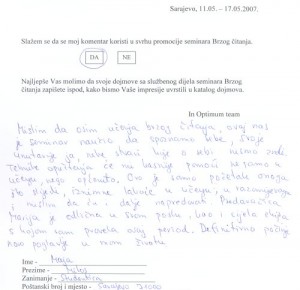 Sarajevo, 11.05. – 17.05.2007.
Slažem se da se moj komentar koristi u svrhu promocije seminara Brzog čitanja.
DA NE
Najljepše Vas molimo da svoje dojmove sa službenog dijela seminara Brzog
čitanja zapišete ispod, kako bismo Vaše impresije uvrstili u katalog dojmova.
In Optimum team
Mislim da osim učenja brzog čitanja, ovaj nas
je seminar naučio da spoznamo sebe, svoje
unutarnje ja, neke stvari koje o sebi nismo znali.
Tehnike opuštanja će nu pomoći ne samo u
učenju, nego općenito. Ovo je samo početak onoga
što slijedi, iznimne lakoće u učenju, u razumijevanju
i mislim da ću i dalje napredovati. Predavačica
Marija je odlična u svom poslu, kao i cijela ekipa
s kojom sam provela ovaj period. Definitivno počinje
novo poglavlje u mom životu
Ime - Maja
Prezime -
Zanimanje - Studentica
Poštanski broj i mjesto - Sarajevo 71000